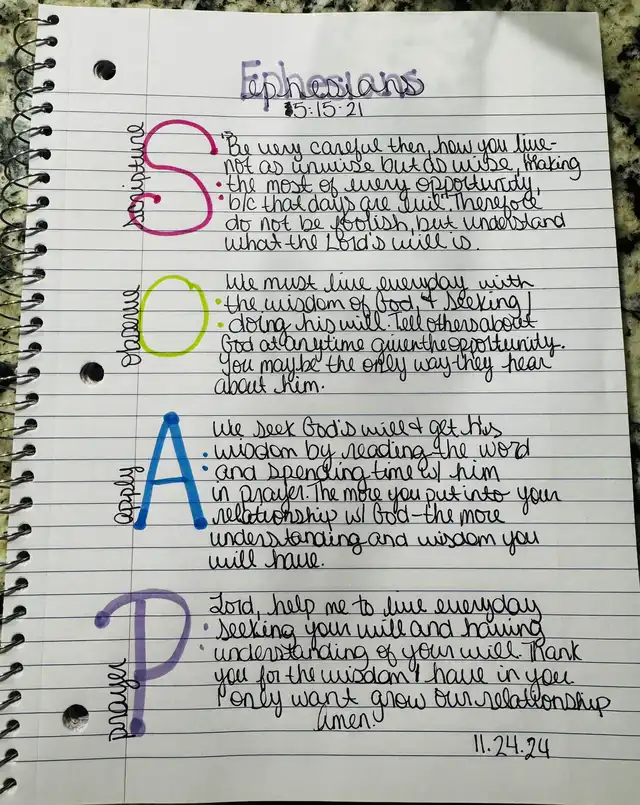 Ephesians
5:15-21
scripture
S
"Be very careful then, how you live-
not as unwise but as wise, making
: the most of every opportunity,
b/c that days are evil." Therefore
do not be foolish, but understand
what the Lord's will is.
observe
O
We must live everyday with
: the wisdom of God & seeking/
doing his will. Tell others about
God at anytime given the opportunity.
You may be the only way they hear
about him.
apply
A
We seek God's will & get His
: wisdom by reading the word
and spending time w/ him
in prayer. The more you put into your
relationship w/ God-the more
understanding and wisdom you
will have.
prayer
P
Lord, help me to live everyday
: seeking your will and having
understanding of your will. Thank
you for the wisdom I have in you
I only want grow our relationship
Amen.
11.24.24